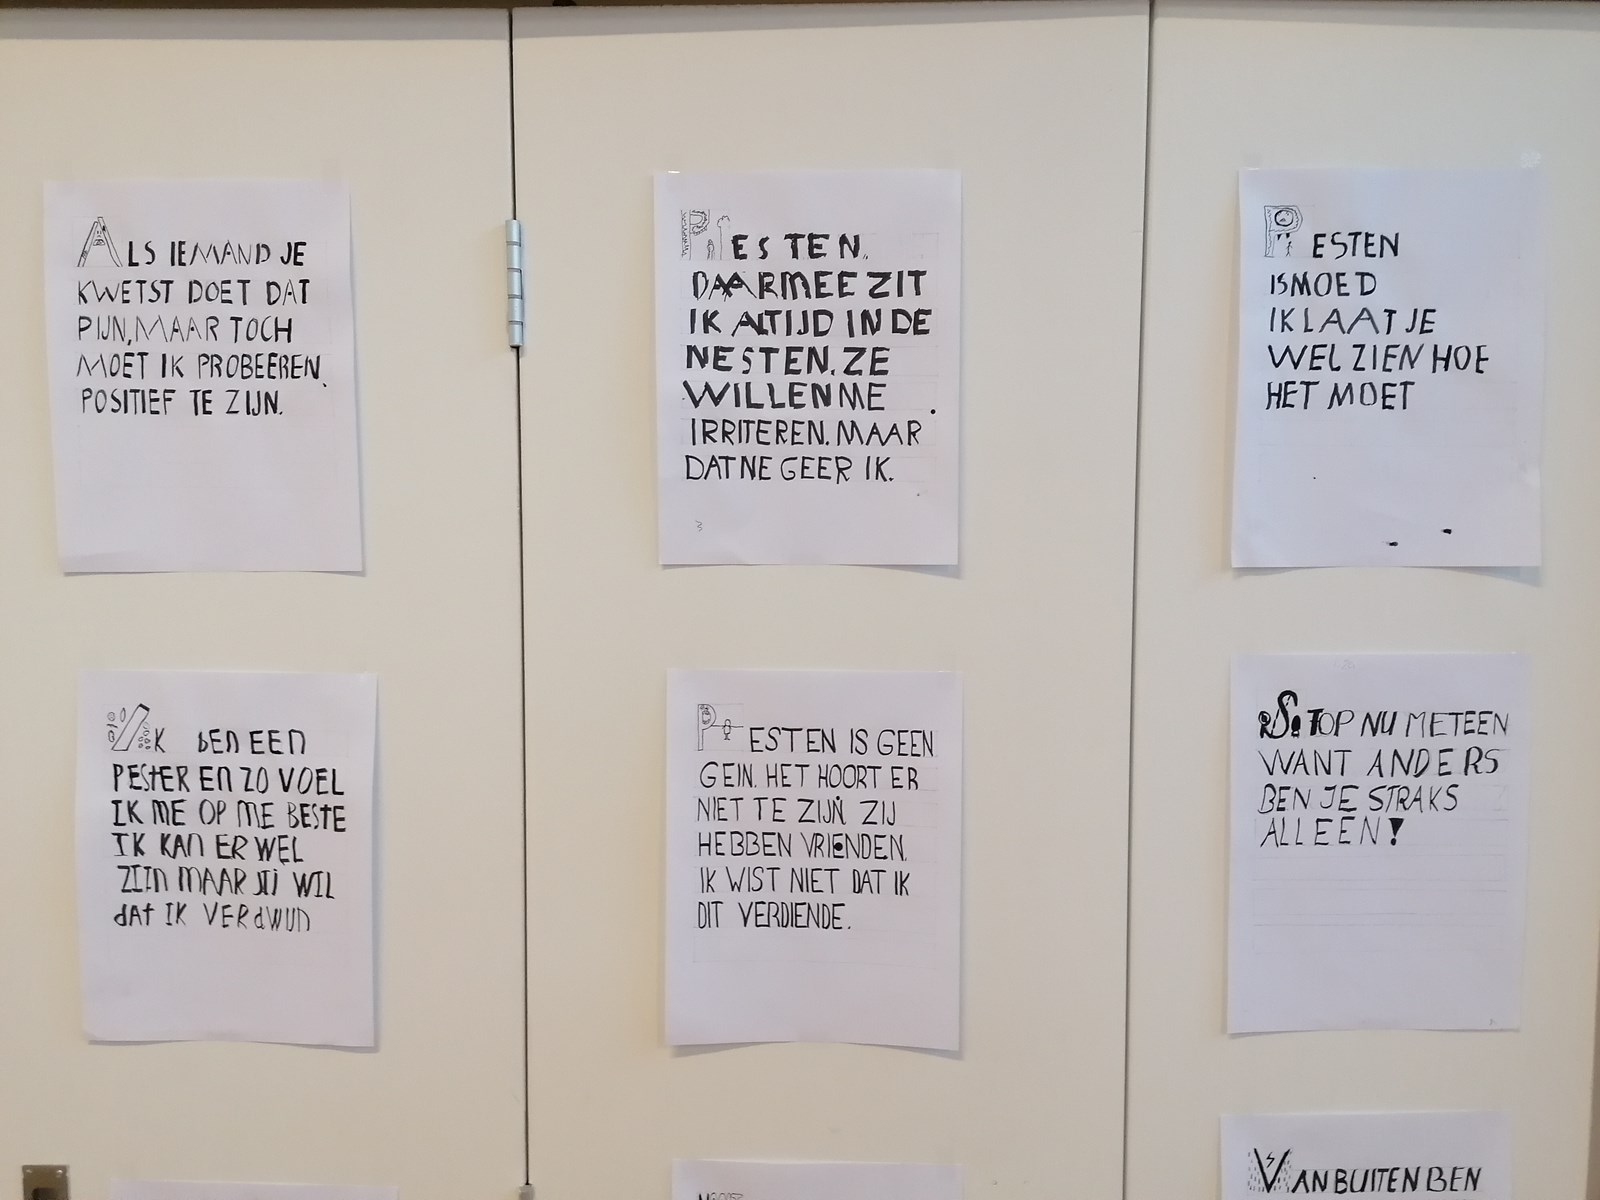 ALS IEMAND JE
KWETST DOET DAT
PIJN, MAAR TOCH
MOET IK PROBEEREN
POSITIEF TE ZIJN.
PESTEN.
DAARMEE ZIT
IK ALTIJD IN DE
NESTEN. ZE
WILLEN ME
IRRITEREN. MAAR
DAT NEGEER IK.
3
PESTEN
IS MOED
IK LAAT JE
WEL ZIEN HOE
HET MOET
IK bEN EEN
PEStER EN ZO VOEL
IK ME OP ME BESTE
IK KAN ER WEL
ZIJN MAAR JIJ WIL
dAt IK VERdWIJN
PESTEN IS GEEN
GEIN. HET HOORT ER
NIET TE ZIJN. ZIJ
HEBBEN VRIENDEN.
IK WIST NIET DAT IK
DIT VERDIENDE.
STOP NU METEEN
WANT ANDERS
BEN JE STRAKS
ALLEEN!
VAN BUITEN BEN